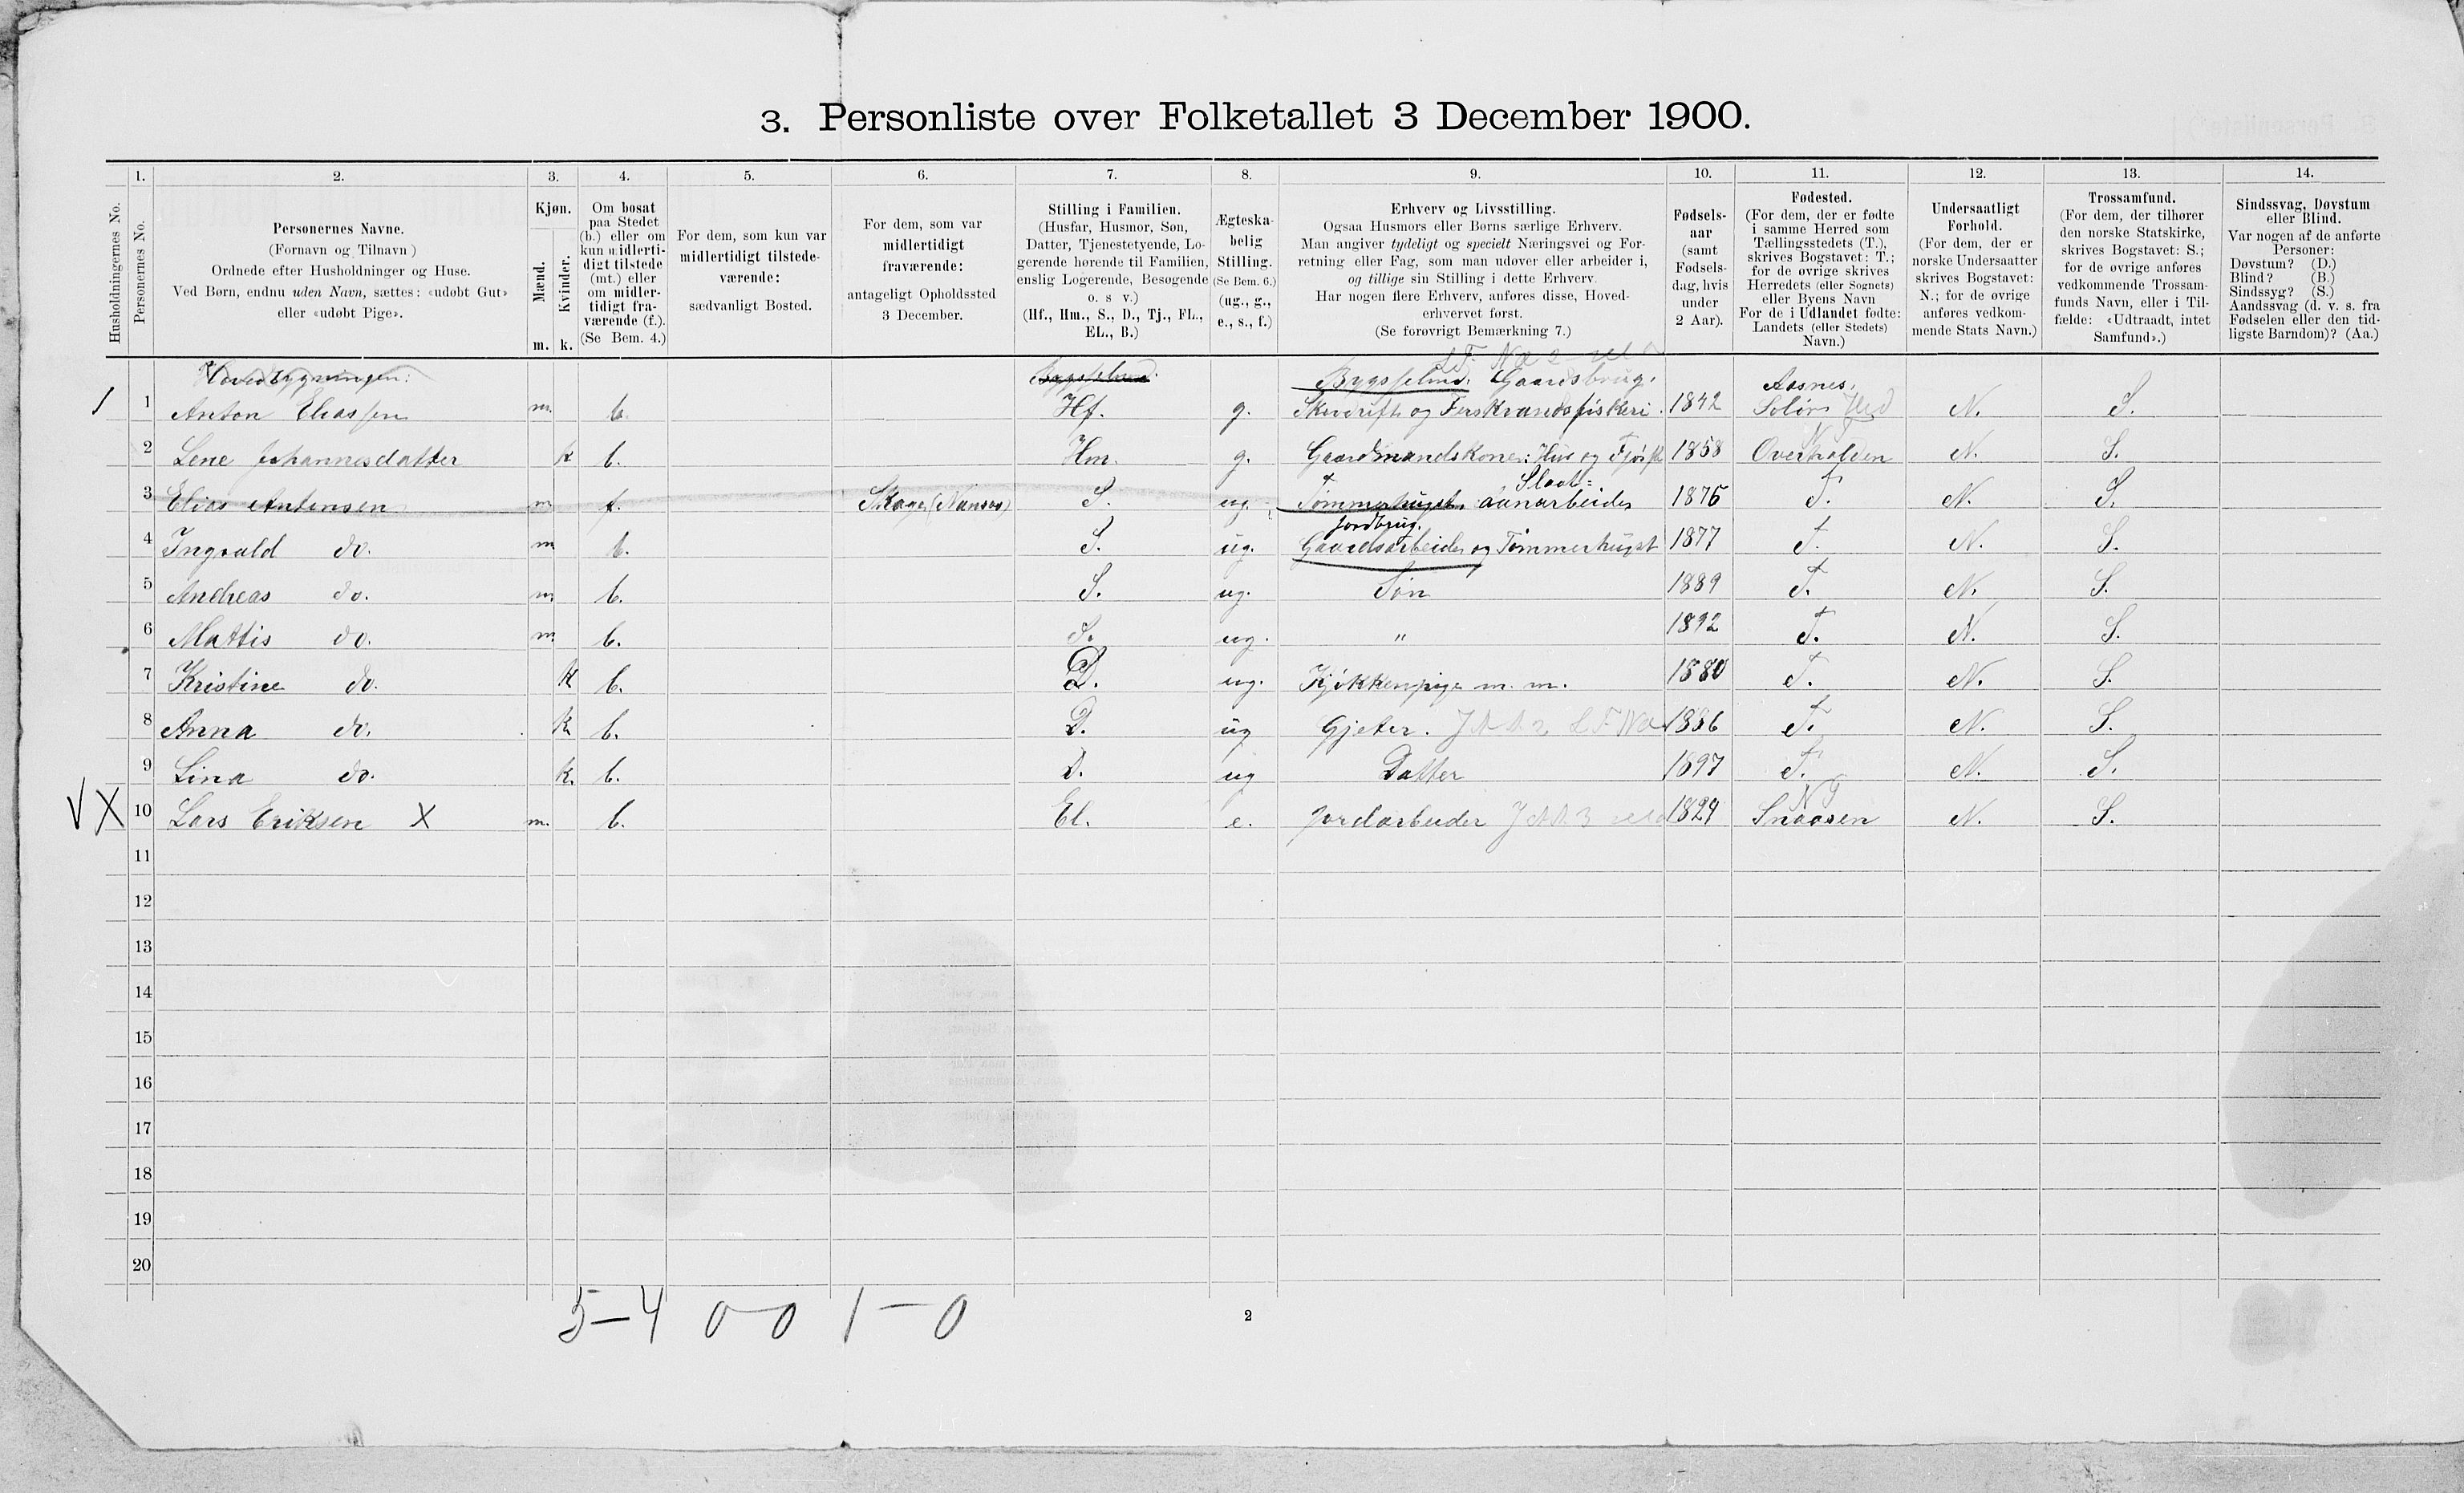 3. Personliste over Folketallet 3 December 1900.
1. 2. 3. 4. 5. 6. 7. 8. 9. 10. 11. 12. 13. 14.
Husholdningernes No.
Personernes No.
Personernes Navne.
(Fornavn og Tilnavn)
Ordnede efter Husholdninger og Huse.
Ved Børn, endnu uden Navn, sættes: «udøbt Gut»
eller «udøbt Pige».
Kjøn.
Mænd.
Kvinder.
m. k.
Om bosat
paa Stedet
(b.) eller om
kun midlerti-
digt tilstede
(mt.) eller
om midler-
tidigt fra-
værende (f.).
(Se Bem. 4.)
For dem, som kun var
midlertidigt tilstede-
værende:
sædvanligt Bosted.
For dem, som var
midlertidigt
fraværende:
antageligt Opholdssted
3 December.
Stilling i Familien.
(Husfar, Husmor, Søn,
Datter, Tjenestetyende, Lo-
gerende hørende til Familien,
enslig Logerende, Besøgende
o. s v.)
(Hf., Hm., S., D., Tj., FL.,
EL., B.)
Ægteska-
belig
Stilling.
(Se Bem. 6.)
(ug., g.,
e., s., f.)
Erhverv og Livsstilling.
Ogsaa Husmors eller Børns særlige Erhverv.
Man angiver tydeligt og specielt Næringsvei og For-
retning eller Fag, som man udøver eller arbeider i,
og tillige sin Stilling i dette Erhverv.
Har nogen flere Erhverv, anføres disse, Hoved-
erhvervet først.
(Se forøvrigt Bemærkning 7.)
Fødsels-
aar
(samt
Fødsels-
dag, hvis
under
2 Aar).
Fødested.
(For dem, der er fødte
i samme Herred som
Tællingsstedets (T.),
skrives Bogstavet: T.;
for de øvrige skrives
Herredets (eller Sognets)
eller Byens Navn
For de i Udlandet fødte:
Landets (eller Stedets)
Navn.)
Undersaatligt
Forhold.
(For dem, der er
norske Undersaatter
skrives Bogstavet:
N.; for de øvrige
anføres vedkom-
mende Stats Navn.)
Trossamfund.
(For dem, der tilhører
den norske Statskirke,
skrives Bogstavet: S.;
for de øvrige anføres
vedkommende Trossam-
funds Navn, eller i Til-
fælde: «Udtraadt, intet
Samfund».)
Sindssvag, Døvstum
eller Blind.
Var nogen af de anførte
Personer:
Døvstum? (D.)
Blind? (B.)
Sindssyg? (S.)
Aandssvag (d. v. s. fra
Fødselen eller den tid-
ligste Barndom)? (Aa.)
Hovedbygningen: Bygselmd. Bygselmd. Gaardsbrug, Aasnes,
1 1 Anton Eliassen m. b. Hf. g. Skovdrift og Ferskvandsfiskeri. 1842 Solør Hed N. S.
2 Lene Johannesdatter k b. Hm. g. Gaardmandskone: Hus og Fjøsst 1858 Overhalden N. S.
Slaat=
3 Elias Antonsen m f. Skage (Namsos) S. ug. Tømmerhugst. aanarbeider 1876 T. N. S.
Jordbrug.
4 Ingvald do. m b. S. ug. Gaardsarbeider og Tømmerhugst 1877 T. N. S.
5 Andreas do. m. b. S. ug. Søn 1889 T. N. S.
6 Mattis do. m b. S. ug. " 1892 T. N. S.
7 Kristine do. k b. D. ug. Kjøkkenpige m. m. 1880 T. N. S.
8 Anna do. k b. D. ug Gjeter. 1886 T. N. S.
9 Lina do. k. b. D. ug Datter 1897 T. N. S.
V X 10 Lars Eriksen X m. b. El. e. Jordarbeider 1829 Snaasen N. S.
11
12
13
14
15
16
17
18
19
20
5-4 0-0 1-0
2